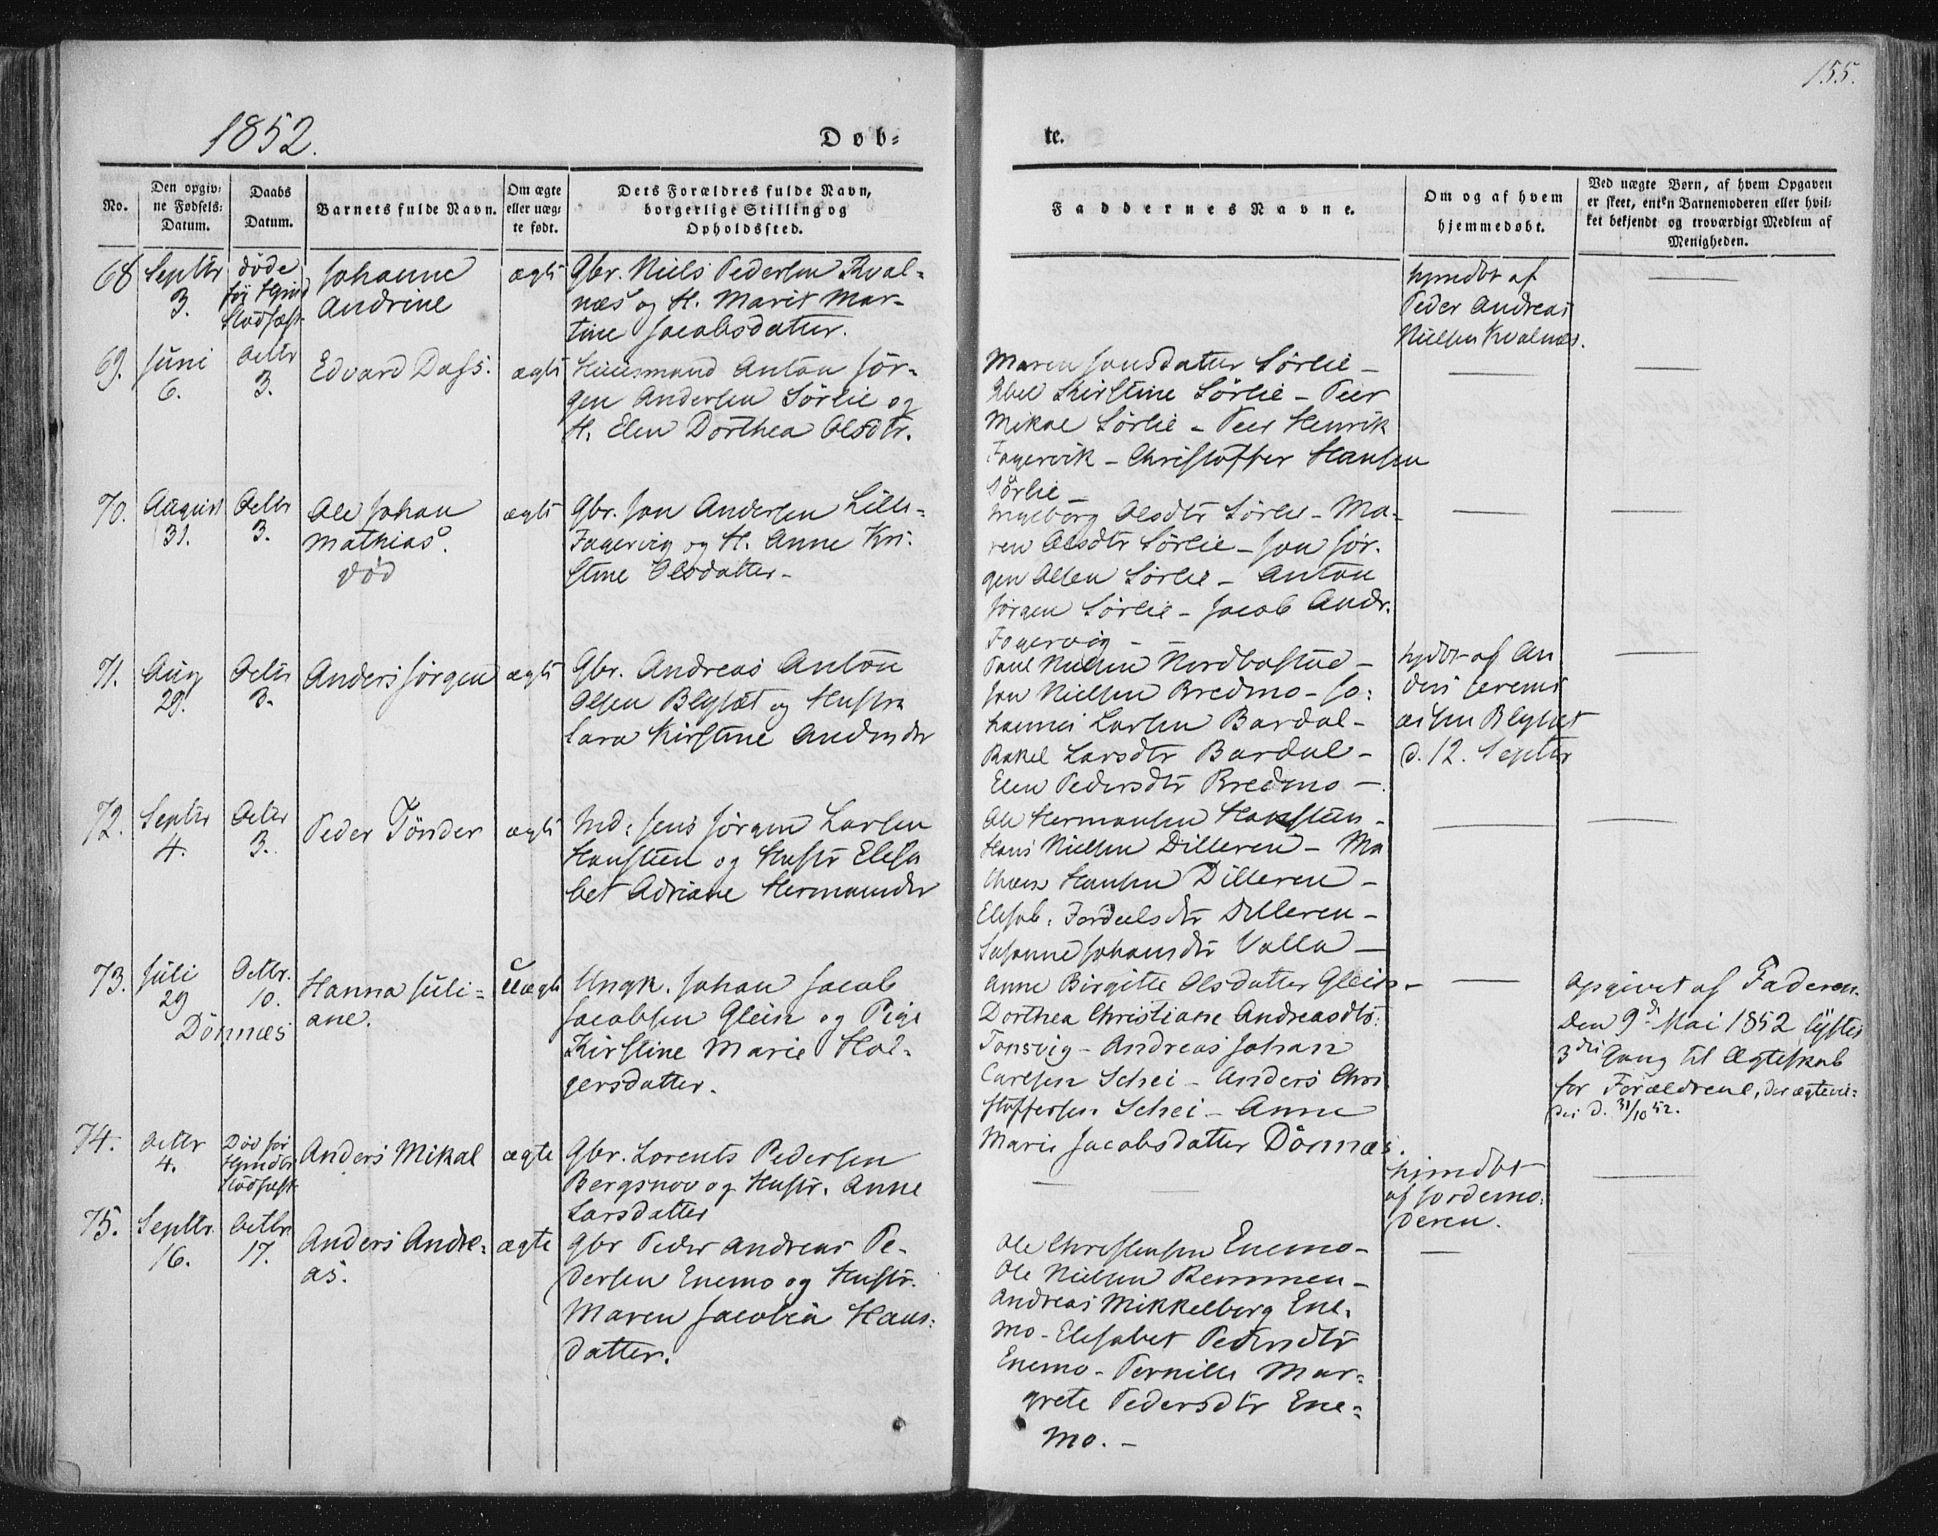 155.
1852.
Døb-
te.
No.
Den opgiv-
ne Fødsels-
Datum.
Daabs
Datum.
Barnets fulde Navn.
Om ægte
eller uæg-
te født.
Dets Forældres fulde Navn,
borgerlige Stilling og
Opholdssted.
Faddernes Navne.
Om og af hvem
hjemmedøbt.
Ved uægte Børn, af hvem Opgaven
er skeet, enten Barnemoderen eller hvil-
ket bekjendt og troværdigt Medlem af
Menigheden.
68
Septbr
3.
døde
før Hjmd
Stadfæst
Johanne
Andrine
ægte
Gbr. Niels Pedersen Kval-
næs og H. Marit Mar-
tine Jacobsdatter.
hjmdbt af
Peder Andreas
Nielsen Kvalnæs.
69.
Juni
6.
Octbr
3.
Edvard Dass.
ægte
Huusmand Anton Jør-
gen Andersen Sørlie og
H. Elen Dorthea Olsdtr.
Maren Jonsdatter Sørlie -
Abel Kirstine Sørlie - Peer
Mikal Sørlie - Peer Henrik
Fagervik - Christoffer Hansen
Sørlie -
70.
August
31.
Octbr
3.
Ole Johan
Mathias.
død
ægte
Gbr. Jon Andersen Lille-
Fagervig og H. Anne Kri-
stine Olsdatter -
Ingeborg Olsdtr Sørlie - Ma-
ren Olsdtr Sørlie - Jon Jør-
gen Olsen Sørlie - Anton
Jørgen Sørlie - Jacob Andr.
Fagervig -
71.
Aug
29.
Octbr
3.
Anders Jørgen
ægte
Gbr. Andreas Anton
Olsen Blyset og Hustru
Lara Kirstine Andersdtr
Paul Nielsen Nordbostue -
Jon Nielsen Bredmo - Jo-
hannes Larsen Bardal -
Rakel Larsdtr Bardal -
Elen Pedersdtr Bredmo -
hjdbt af An
ders Jeremi
asen Blyset
d. 12. Septbr
72.
Septbr
4.
Octbr
3.
Peder Tønder
ægte
Md: Jens Jørgen Larsen
Hansteen og Hustr Elisa
bet Adriane Hermansdtr
Ole Hermansen Hansteen -
Hans Nielsen Dilleren - Ma
thias Hansen Dilleren -
Elisab. Jordeelsdtr Dilleren -
Susanne Johansdtr Valla -
73.
Juli
29
Octbr.
10.
Dönnæs
Hanna Juli-
ane.
Uægte
Ungk. Johan Jacob
Jacobsen Glein og Pige
Kirstine Marie Hol-
gersdatter.
Anne Birgitte Olsdatter Glein -
Dorthea Christiane Andreasdtr.
Tonsvig - Andreas Johan
Carlsen Schei - Anders Chri
stoffersen Schei - Anne
Marie Jacobsdatter Dönnæs.
Opgivet af Faderen.
Den 9d Mai 1852 lystes
3die Gang til Ægteskab
for Forældrene, der ægtevie-
des d. 31/10 52.
74.
Octbr
4.
Død før
Hjmdbt
Stadfæst
Anders Mikal
ægte
Gbr. Lorents Pedersen
Bergsnov og Hustr. Anne
Larsdatter
hjmdbt
af Jordemo-
deren.
75.
Septbr.
16.
Octbr.
17.
Anders Andre-
as.
ægte
Gbr Peder Andreas Pe-
dersen Enemo og Hustr.
Maren Jacobia Hans-
datter.
Ole Christensen Enemo -
Ole Nielsen Remmen -
Andreas Mikkelborg Ene-
mo - Elisabet Pedersdtr
Enemo - Pernille Mar-
grete Pedersdtr Ene-
mo. -